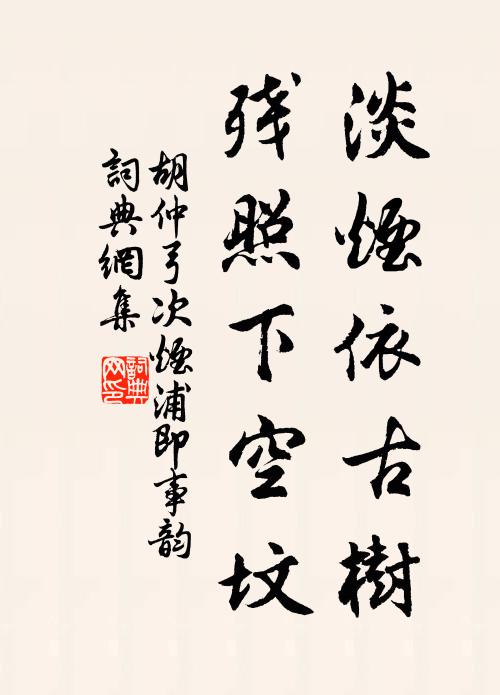 淡煙依古樹
残照下空坟
胡仲弓次煙浦即事韵
詞典網集
詞典网印